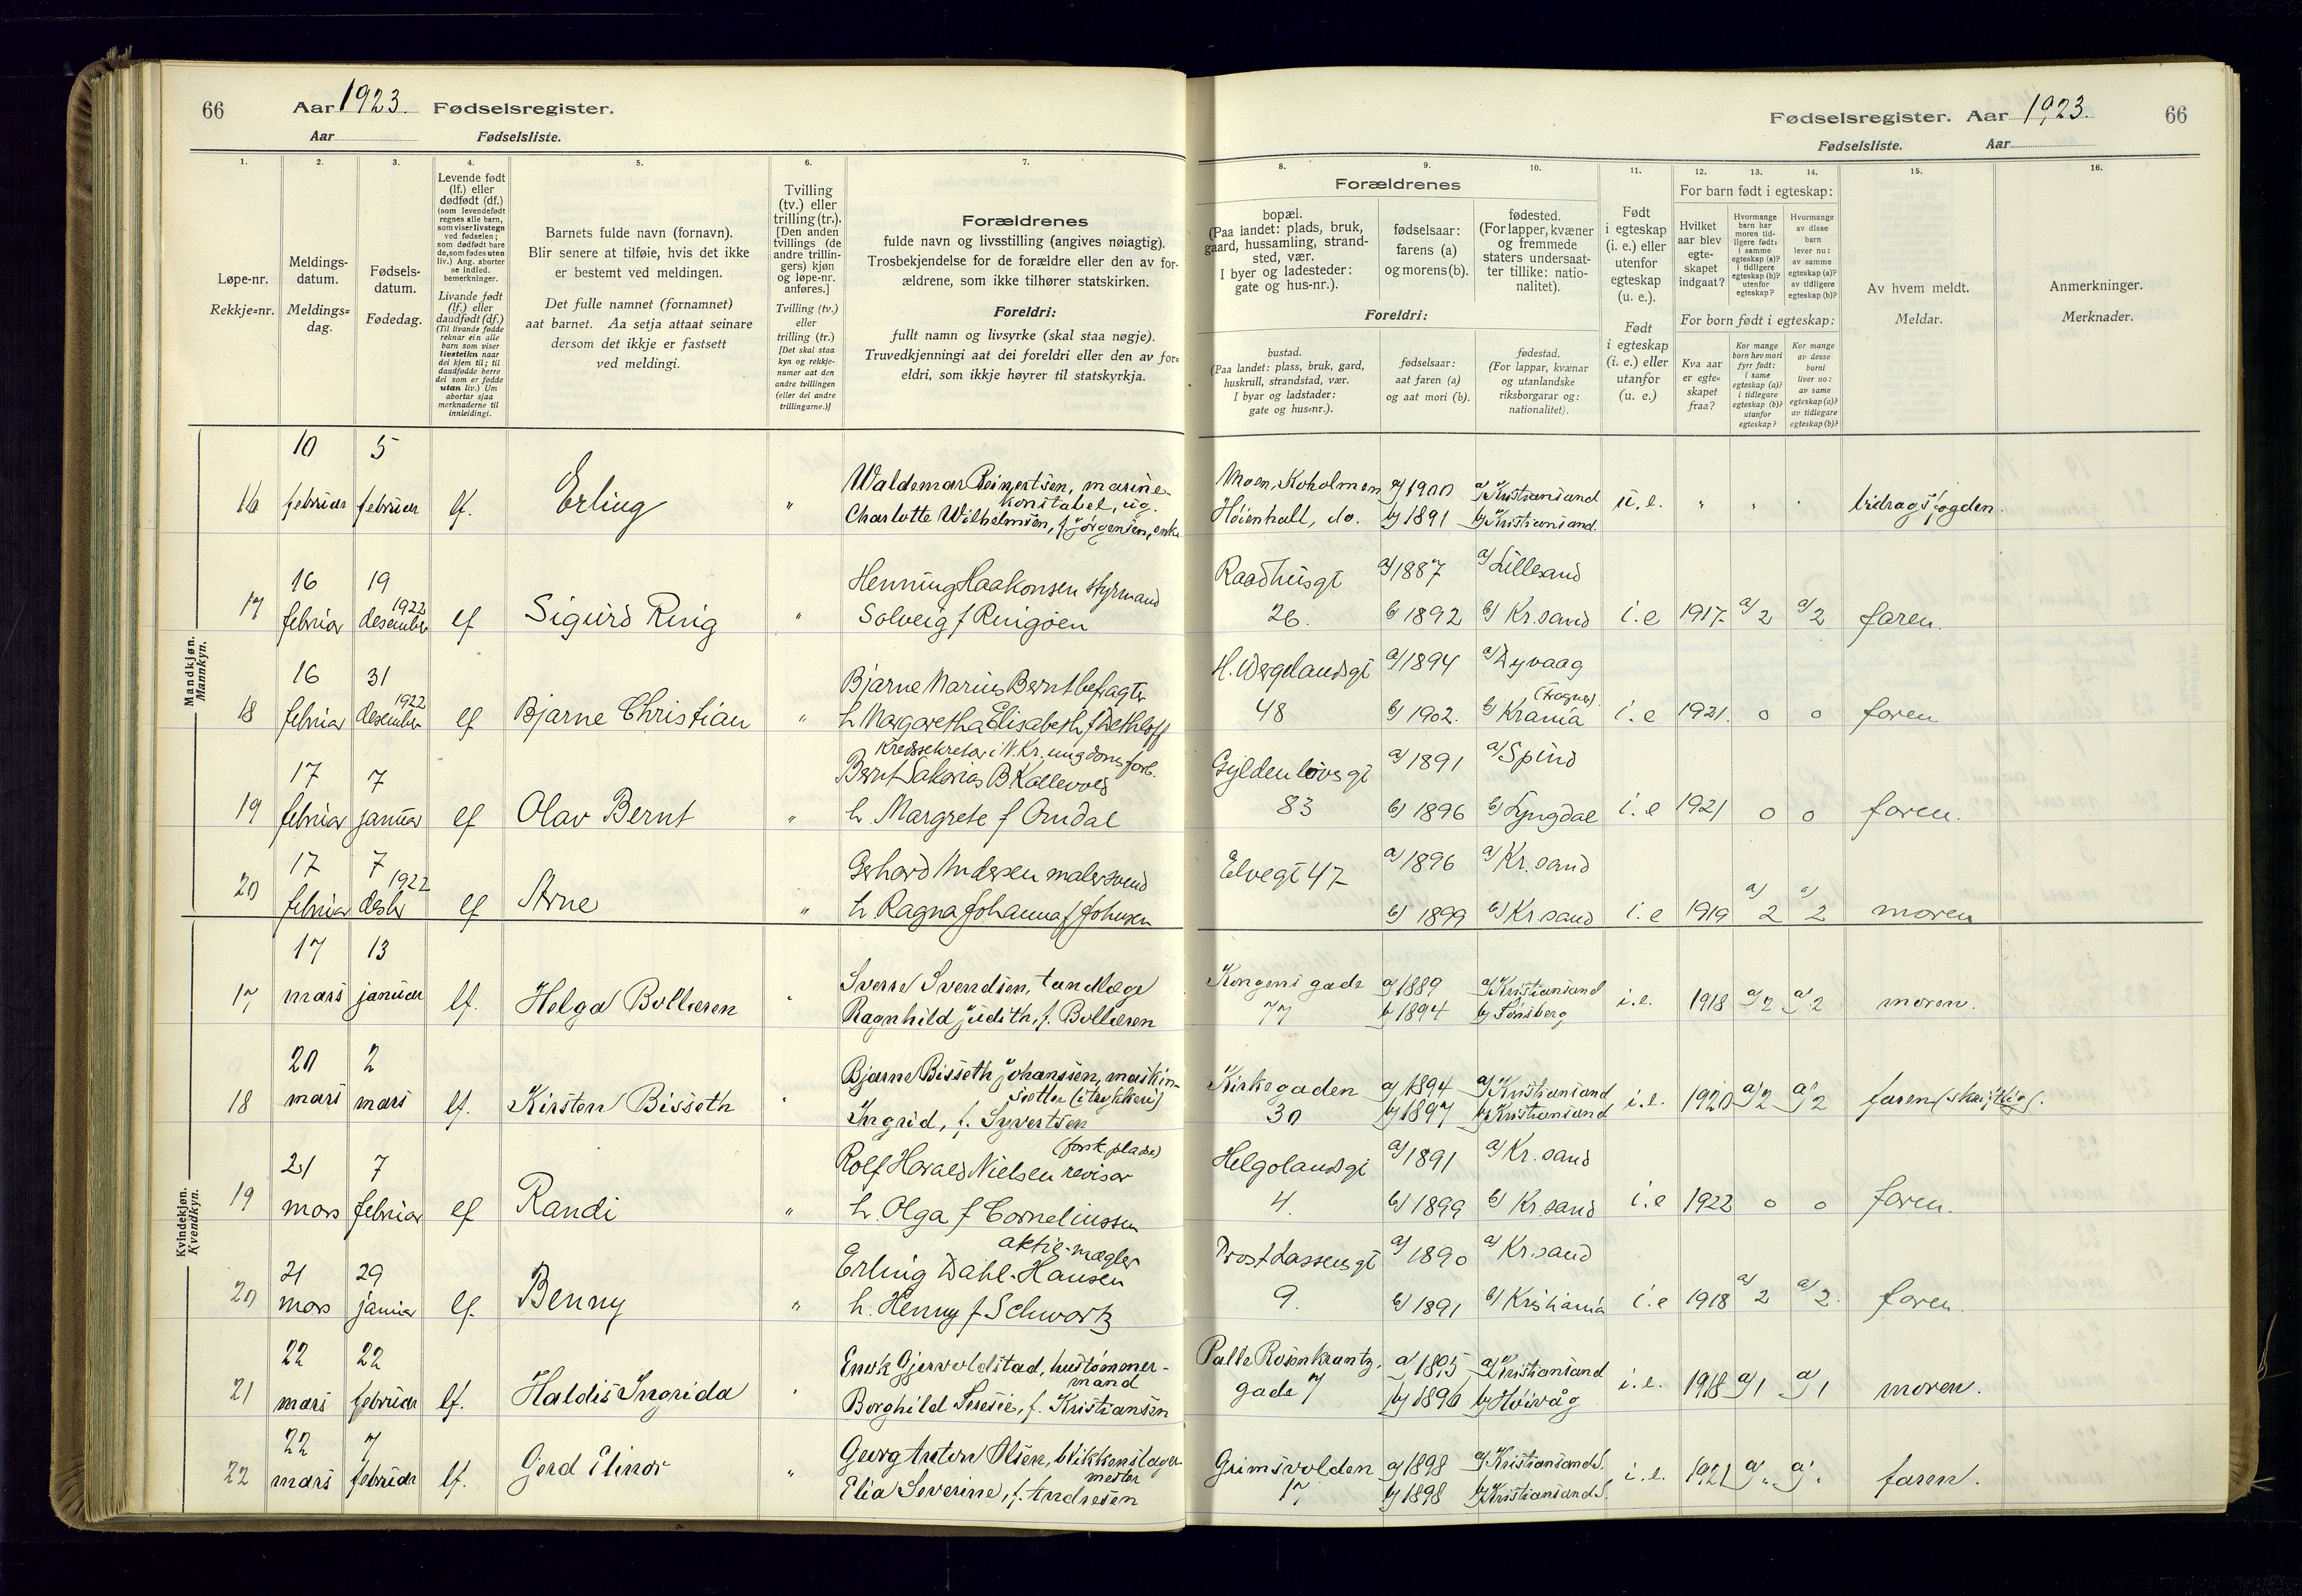 66 Aar 1923. Fødselsregister.
Aar Fødselsliste.
Fødselsregister. Aar 1923. 66
Fødselsliste. Aar
1. 2. 3. 4. 5. 6. 7.
Løpe-nr.
Rekkje=nr.
Meldings-
datum.
Meldings=
dag.
Fødsels-
datum.
Fødedag.
Levende født
(lf.) eller
dødfødt (df.)
(som levendefødt
regnes alle barn,
som viser livstegn
ved fødselen;
som dødfødt bare
de, som fødes uten
liv.) Ang. aborter
se indled.
bemerkninger.
Livande født
(lf.) eller
daudfødt (df.)
(Til livande fødde
reknar ein alle
barn som viser
livsteikn naar
dei kjem til; til
daudfødde berre
dei som er fødde
utan liv.) Um
abortar sjaa
merknaderne til
innleidingi.
Barnets fulde navn (fornavn).
Blir senere at tilføie, hvis det ikke
er bestemt ved meldingen.
Det fulle namnet (fornamnet)
aat barnet. Aa setja attaat seinare
dersom det ikkje er fastsett
ved meldingi.
Tvilling
(tv.) eller
trilling (tr.).
[Den anden
tvillings (de
andre trillin-
gers) kjøn
og løpe-nr.
anføres.]
Tvilling (tv.)
eller
trilling (tr.)
[Det skal staa
kyn og rekkje-
numer aat den
andre tvillingen
(eller dei andre
trillingarne.)]
Forældrenes
fulde navn og livsstilling (angives nøiagtig).
Trosbekjendelse for de forældre eller den av for-
ældrene, som ikke tilhører statskirken.
Foreldri:
fullt namn og livsyrke (skal staa nøgje).
Truvedkjenningi aat dei foreldri eller den av for-
eldri, som ikkje høyrer til statskyrkja.
8. 9. 10. 11. 12. 13. 14. 15. 16.
Forældrenes
bopæl.
(Paa landet: plads, bruk,
gaard, hussamling, strand-
sted, vær.
I byer og ladesteder:
gate og hus-nr.).
fødselsaar:
farens (a)
og morens (b).
fødested.
(For lapper, kvæner
og fremmede
staters undersaat-
ter tillike: natio-
nalitet).
Foreldri:
bustad.
(Paa landet: plass, bruk, gard,
huskrull, strandstad, vær.
I byar og ladstader:
gate og hus=nr.).
fødselsaar:
aat faren (a)
og aat mori (b).
fødestad.
(For lappar, kvænar
og utanlandske
riksborgarar og:
nationalitet).
Født
i egteskap
(i. e.) eller
utenfor
egteskap
(u. e.).
Født
i egteskap
(i. e.) eller
utanfor
(u. e.)
For barn født i egteskap:
Hvilket
aar blev
egte-
skapet
indgaat?
Hvormange
barn har
moren tid-
ligere født:
i samme
egteskap (a)?
i tidligere
egteskap (b)?
utenfor
egteskap?
Hvormange
av disse
barn
lever nu:
av samme
egteskap (a)?
av tidligere
egteskap (b)?
For born født i egteskap:
Kva aar
er egte=
skapet
fraa?
Kor mange
born hev mori
fyrr født:
i same
egteskap (a)?
i tidlegare
egteskap (b)?
utanfor
egteskap?
Kor mange
av desse
borni
liver no:
av same
egteskap (a)?
av tidlegare
egteskap (b)?
Av hvem meldt.
Meldar.
Anmerkninger.
Merknader.
Mandkjøn.
Mannkyn.
16 10 februar 5 februar lf. Erling " Waldemar Reinertsen, marine-
konstabel, ug.
Charlotte Wilhelmsen, f. Jørgensen, enke
Moen, Koholmen a/ 1900 a/ Kristiansand
Høienhall, do. b/ 1891 b/ Kristiansand. u. e. " " " bidragsfogden.
17 16 februar 19 desember 1922 lf Sigurd Ring " Henning Haakonsen styrmand
Solveig f Ringøen
Raadhusgt a/ 1887 a/ Lillesand
26. b 1892 b/ Kr.sand i. e 1917 a/ 2 a/ 2 faren.
18 16 februar 31 desember 1922 lf Bjarne Christian " Bjarne Marius Bernt
h. Margaretha Elisabeth f Dethloff
H. Wergelandsgt a/ 1894 a/ Dyvaag
48 b/ 1902. b/ Krania i. e 1921. 0 0 faren
19 17 februar 7 januar lf Olav Bernt " Kredssekretær i N. Kr. ungdomsforb.
Bernt Sakarias B Kollevold
h. Margrete f Omdal
Gyldenløvsgt a/ 1891 a/ Spind
83 b/ 1896 b/ Lyngdal i. e 1921 0 0 faren.
20 17 februar 7 desbr 1922 lf Arne " Gerhard Andersen malersvend
h. Ragna Johanna f Johnsen
Elvegt 47 a/ 1896 a/ Kr. sand
b/ 1899 b/ Kr sand i. e 1919 a/ 2 a/ 2 moren
Kvindekjøn.
Kvendkyn.
17 17 mars 13 januar lf. Helga Bollæren " Sverre Svendsen, tandlæge
Ragnhild Judith, f. Bollæren
Kongens gade a/ 1889 a/ Kristiansand
77 b/ 1894 b/ Tønsberg i. e. 1918 a/ 2 a/ 2 moren.
18 20 mars 2 mars lf. Kirsten Bisseth " Bjarne Bisseth Johansen, maskin-
sætter (i trykkeri)
Ingrid, f. Syvertsen
Kirkegaden a/ 1894 a/ Kristiansand
30 b/ 1897 b/ Kristiansand i. e. 1920 a/ 2 a/ 2 faren (skriftlig).
19 21 mars 7 februar lf Randi " Rolf Harald Nielsen revisor
h. Olga f Corneliussen
Helgolandsgt a/ 1891 a/ Kr. sand
4. b/ 1899 b/ Kr sand i. e 1922 0 0 faren.
20 21 mars 29 januar lf. Benny " aktie-mægler
Erling Dahl-Hansen
h. Henny f Schwartz
Provst Lassensgt a/ 1890 a/ Kr.sand
9. b/ 1891 b/ Kristiania i. e 1918 a/ 2 a/ 2. faren.
21 22 mars 22 februar lf. Haldis Ingrida " Enok Gjervoldstad, hustømmer-
mand
Borghild Teresie, f. Kristiansen
Palle Rosenkrantz. a/ 1895 a/ Kristiansand
gade 7 b/ 1896 b/ Høivåg i. e. 1918 a/ 1 a/ 1 moren.
22 22 mars 7 februar lf. Gerd Elinor " Georg Anton Olsen, blikkenslager-
mester
Elia Severine, f. Andresen
Grimsvolden a/ 1898 a/ Kristiansand S.
17 b/ 1898 b/ Kristiansand S. i. e. 1921 a/ " a/ " faren.